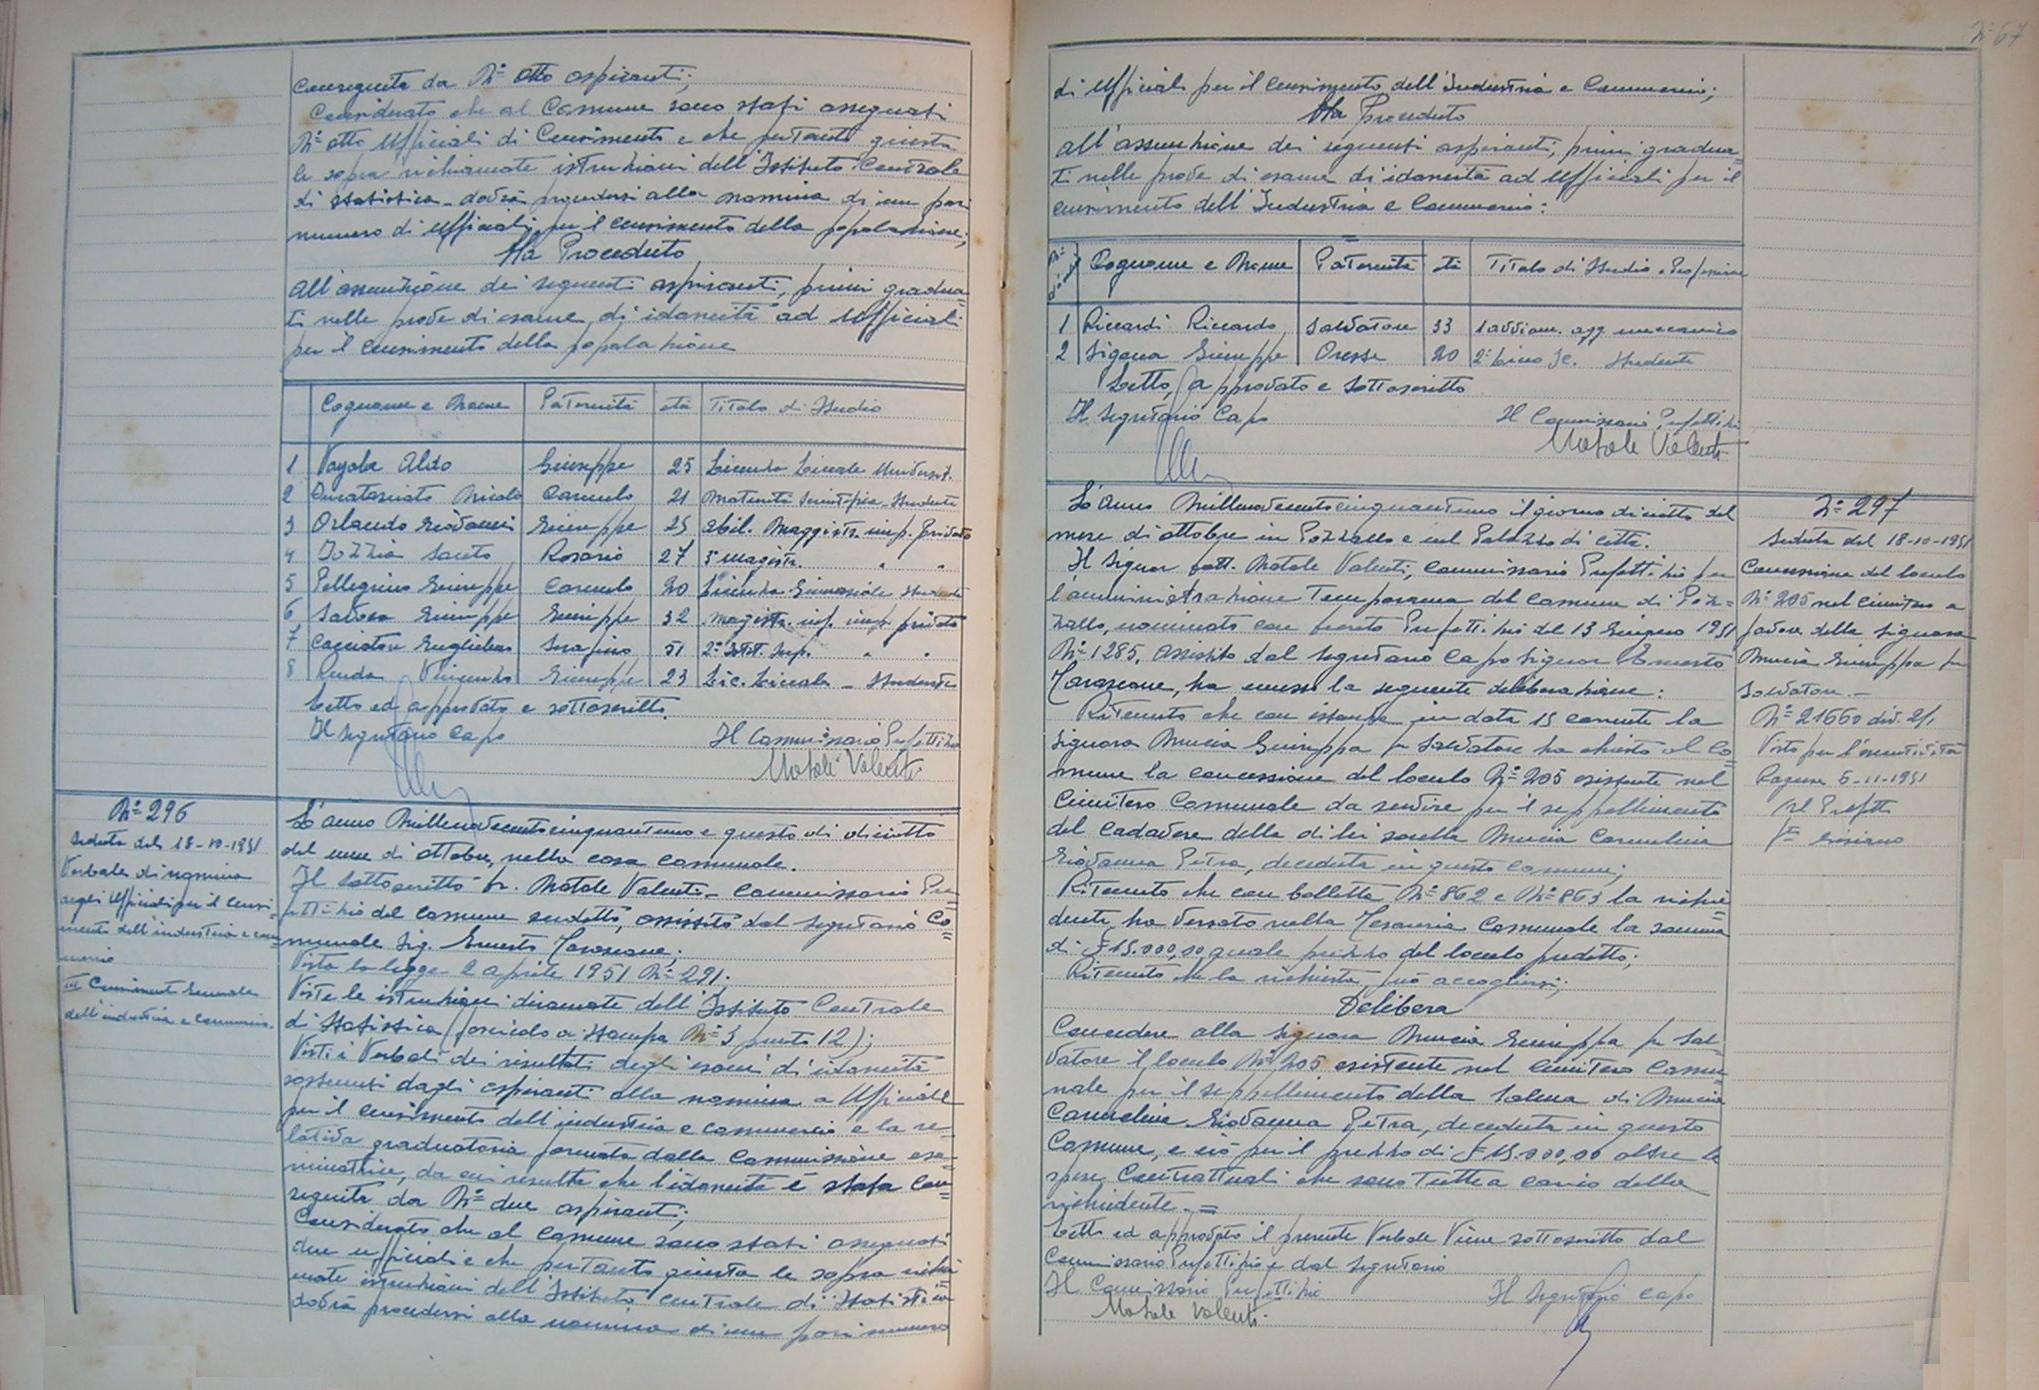 conseguita da N° otto aspiranti;
Considerato che al Comune sono stati assegnati
N° otto Ufficiali di Censimento e che pertanto giusta
le sopra richiamate istruzioni dell'Istituto Centrale
di statistica dovrà procedersi alla nomina di un pari
numero di Ufficiali per il censimento della popolazione;
Ha Proceduto
All'assunzione dei seguenti aspiranti, primi gradua=
ti nelle prove di esame di idoneità ad Ufficiali
per il Censimento della popolazione
Cognome e Nome Paternità età Titolo di Studio
1 Vayola Aldo Giuseppe 25 Licenza Liceale
2 Nicola Carmelo 21 Maturità Scientifica Studente
3 Orlando Giovanni Giuseppe 25 abil. Maggistr. imp. privato
4 Santo Rosario 27 3° magistr. " "
5 Pellegrino Giuseppe Carmelo 20 Licenza Ginnasiale Studente
6 Giuseppe Giuseppe 32 magistr. inf. imp. privato
7 Cacciatore Guglielmo Serafino 51 2° Istit. Sup. " "
8 Renda Vincenzo Giuseppe 23 Lic. Liceale - Studente
Letto ed approvato e sottoscritto.
Il Segretario Capo Il Commissario Prefettizio
Natale Valenti
N° 296
Seduta del 18-10-1951
Verbale di nomina
degli Ufficiali per il censi=
mento dell'industria e com=
mercio
III Censimento Generale
dell'industria e commercio.
L'anno Millenovecentocinquantuno e questo dì diciotto
del mese di ottobre, nella casa comunale.
Il sottoscritto Dr. Natale Valenti - Commissario Pre=
fettizio del comune suddetto, assistito dal segretario Co=
munale Sig. Ernesto Tarascone;
Vista la legge 2 aprile 1951 N° 291.
Viste le istruzioni diramate dell'Istituto Centrale
di Statistica (fascicolo a stampa N° 3 punto 12);
Visti i Verbali dei risultati degli esami di idoneità
sostenuti dagli aspiranti alla nomina a Ufficiale
per il censimento dell'industria e commercio e la re=
lativa graduatoria formata dalla Commissione esa=
minatrice, da cui risulta che l'idoneità è stata con=
seguita da N° due aspiranti;
Considerato che al Comune sono stati assegnati
due ufficiali e che pertanto giusta le sopra richia
mate istruzioni dell'Istituto centrale di Statistica
dovrà procedersi alla nomina di un pari numero
N° 67
di Ufficiali per il censimento dell'Industria e Commercio;
Ha Proceduto
all'assunzione dei seguenti aspiranti, primi gradua=
ti nelle prove di esame di idoneità ad Ufficiali per il
censimento dell'Industria e Commercio:
Cognome e Nome Paternità età Titolo di Studio e Professione
1 Riccardi Riccardo Salvatore 33 1 avviam. agg. meccanico
2 Sigona Giuseppe Oreste 20 2° Liceo Sc. Studente
Letto, approvato e sottoscritto
Il Segretario Capo Il Commissario Prefettizio
Natale Valenti
L'anno Millenovecentocinquantuno il giorno diciotto del
mese di ottobre in Pozzallo e nel Palazzo di città.
Il Signor Dott. Natale Valenti, Commissario Prefettizio per
l'amministrazione Temporanea del Comune di Poz=
zallo, nominato con Decreto Prefettizio del 13 Giugno 1951
N° 1285, assistito dal Segretario Capo Signor Ernesto
Tarascone, ha emesso la seguente deliberazione:
Ritenuto che con istanza in data 15 corrente la
Signora Muccia Giuseppa fu Salvatore ha chiesto al Co=
mune la concessione del loculo N° 205 esistente nel
Cimitero Comunale da servire per il seppellimento
del cadavere della di lei sorella Muccia Carmelina
Giovanna Pitra, deceduta in questo Comune;
Ritenuto che con bolletta N° 862 e N° 863 la richie=
dente ha versato nella Tesoreria Comunale la somma
di £ 15.000,00 quale prezzo del loculo predetto;
Ritenuto che la richiesta può accogliersi;
Delibera
Concedere alla Signora Muccia Giuseppa fu Sal=
vatore il loculo N° 205 esistente nel Cimitero Comu=
nale per il seppellimento della Salma di Muccia
Carmelina Giovanna Pitra, deceduta in questo
Comune, e ciò per il prezzo di £ 15.000,00 oltre le
spese contrattuali che sono tutte a carico della
richiedente. =
Letto ed approvato il presente Verbale Viene sottoscritto dal
Commissario Prefettizio e dal Segretario
Il Commissario Prefettizio Il Segretario Capo
Natale Valenti
N° 297
Seduta del 18-10-1951
Concessione del loculo
N° 205 nel cimitero a
favore della Signora
Muccia Giuseppa fu
Salvatore. -
N° 21660 div. 2/1
Visto per l'esecutività
Ragusa 5-11-1951
Il Prefetto